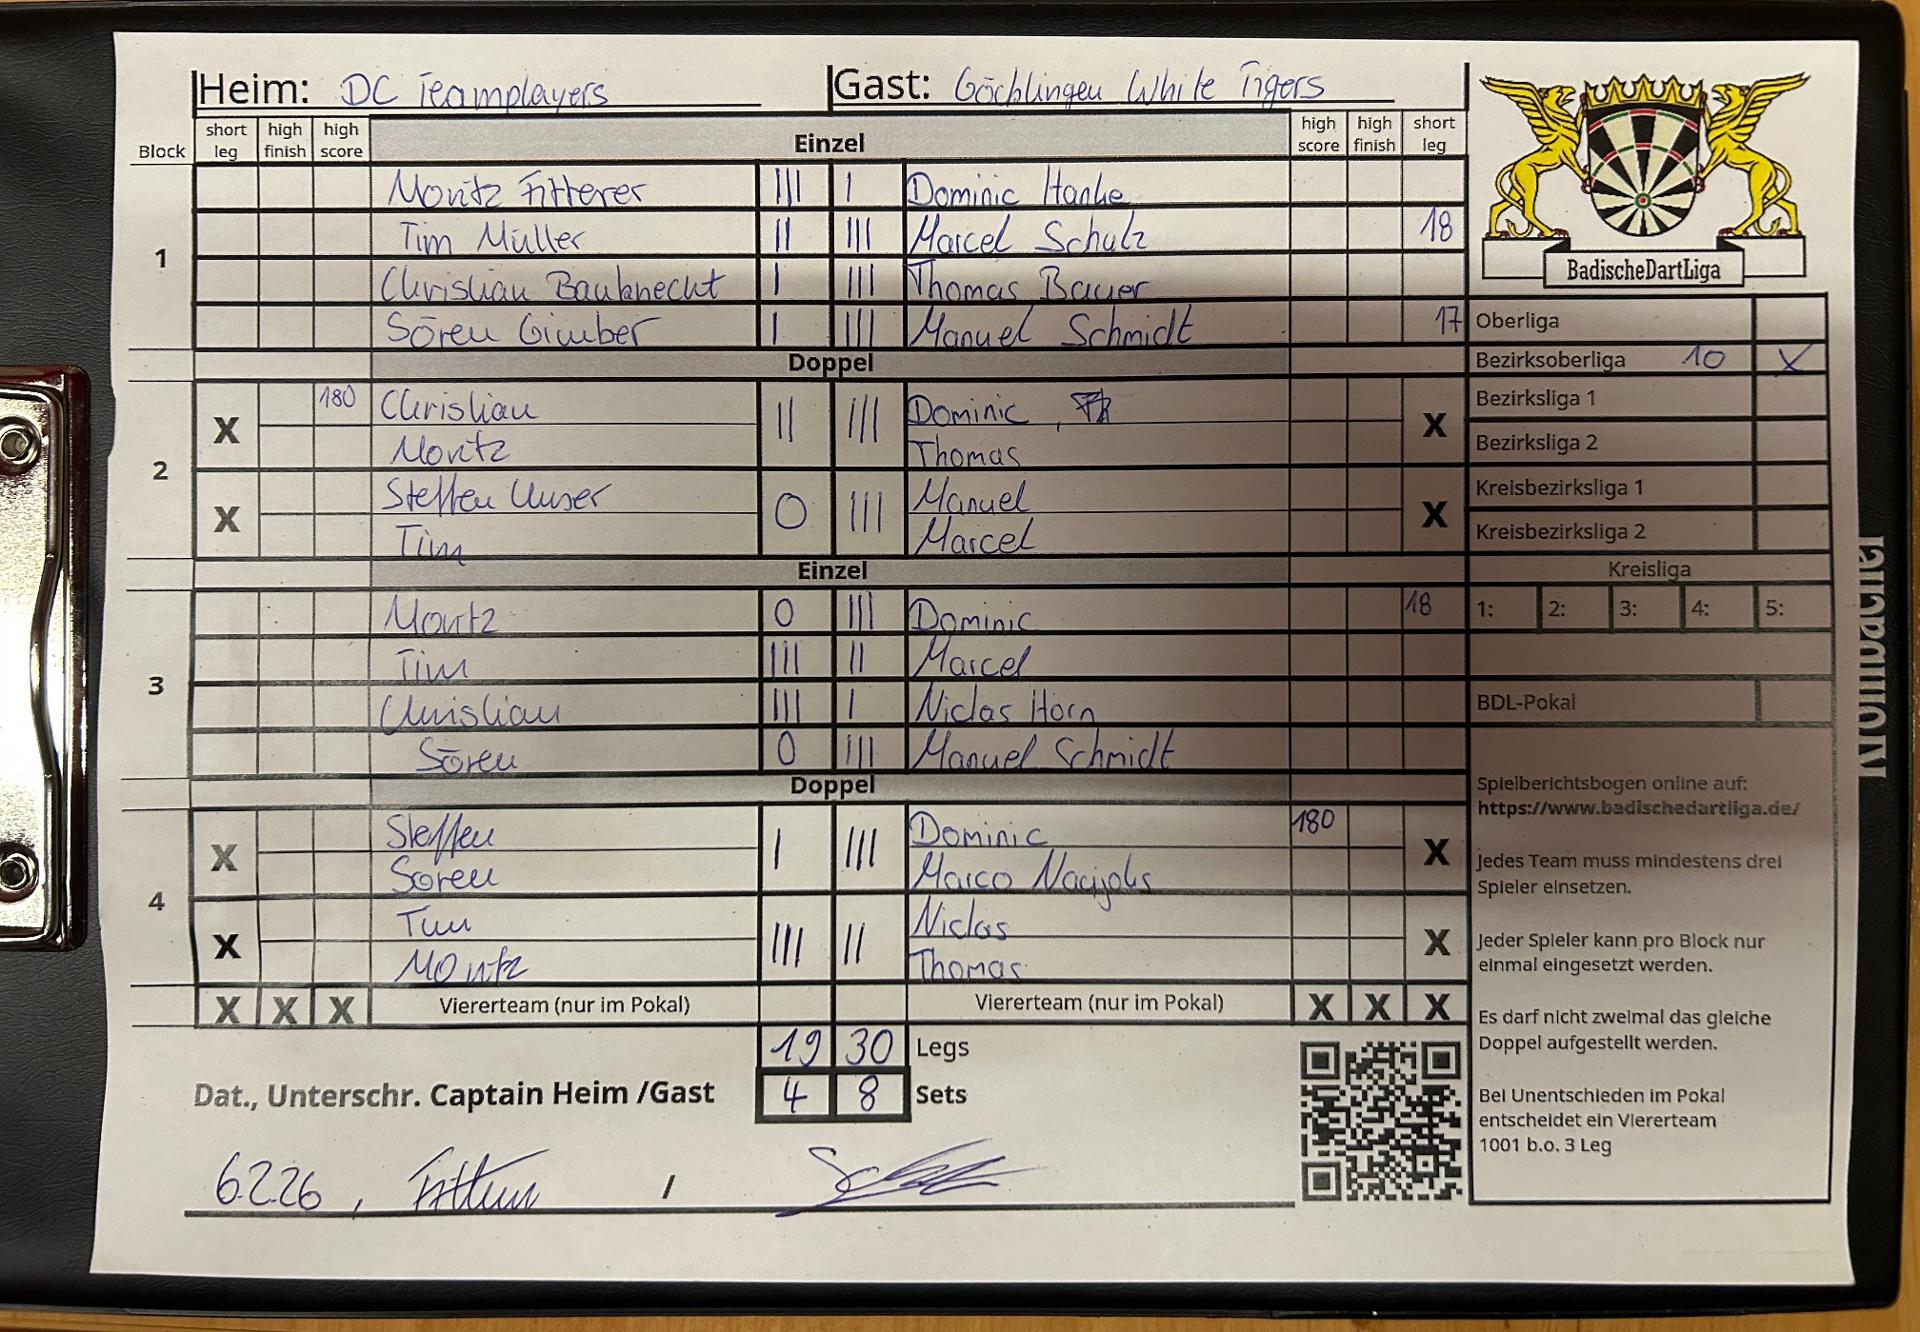 Heim: DC Teamplayers Gast: Göcklingen White Tigers
Block short leg high finish high score Einzel high score high finish short leg
1
Moritz Fitterer III I Dominic Hanke
Tim Müller II III Marcel Schulz 18
Christian Bauknecht I III Thomas Bauer
Sören Gimber I III Manuel Schmidt 17
Doppel
2
X 180 Christian II III Dominic, X
Moritz Thomas
X Steffen Unser 0 III Manuel X
Tim Marcel
Einzel
3
Moritz 0 III Dominic 18
Tim III II Marcel
Christian III I Niclas Horn
Sören 0 III Manuel Schmidt
Doppel
4
X Steffen I III Dominic 180 X
Sören Marco
X Tim III II Niclas X
Moritz Thomas
X X X Viererteam (nur im Pokal) Viererteam (nur im Pokal) X X X
19 30 Legs
Dat., Unterschr. Captain Heim /Gast 4 8 Sets
6.2.26, /
BadischeDartLiga
Oberliga
Bezirksoberliga 10 X
Bezirksliga 1
Bezirksliga 2
Kreisbezirksliga 1
Kreisbezirksliga 2
Kreisliga
1: 2: 3: 4: 5:
BDL-Pokal
Spielberichtsbogen online auf:
https://www.badischedartliga.de/
Jedes Team muss mindestens drei
Spieler einsetzen.
Jeder Spieler kann pro Block nur
einmal eingesetzt werden.
Es darf nicht zweimal das gleiche
Doppel aufgestellt werden.
Bei Unentschieden im Pokal
entscheidet ein Viererteam
1001 b.o. 3 Leg